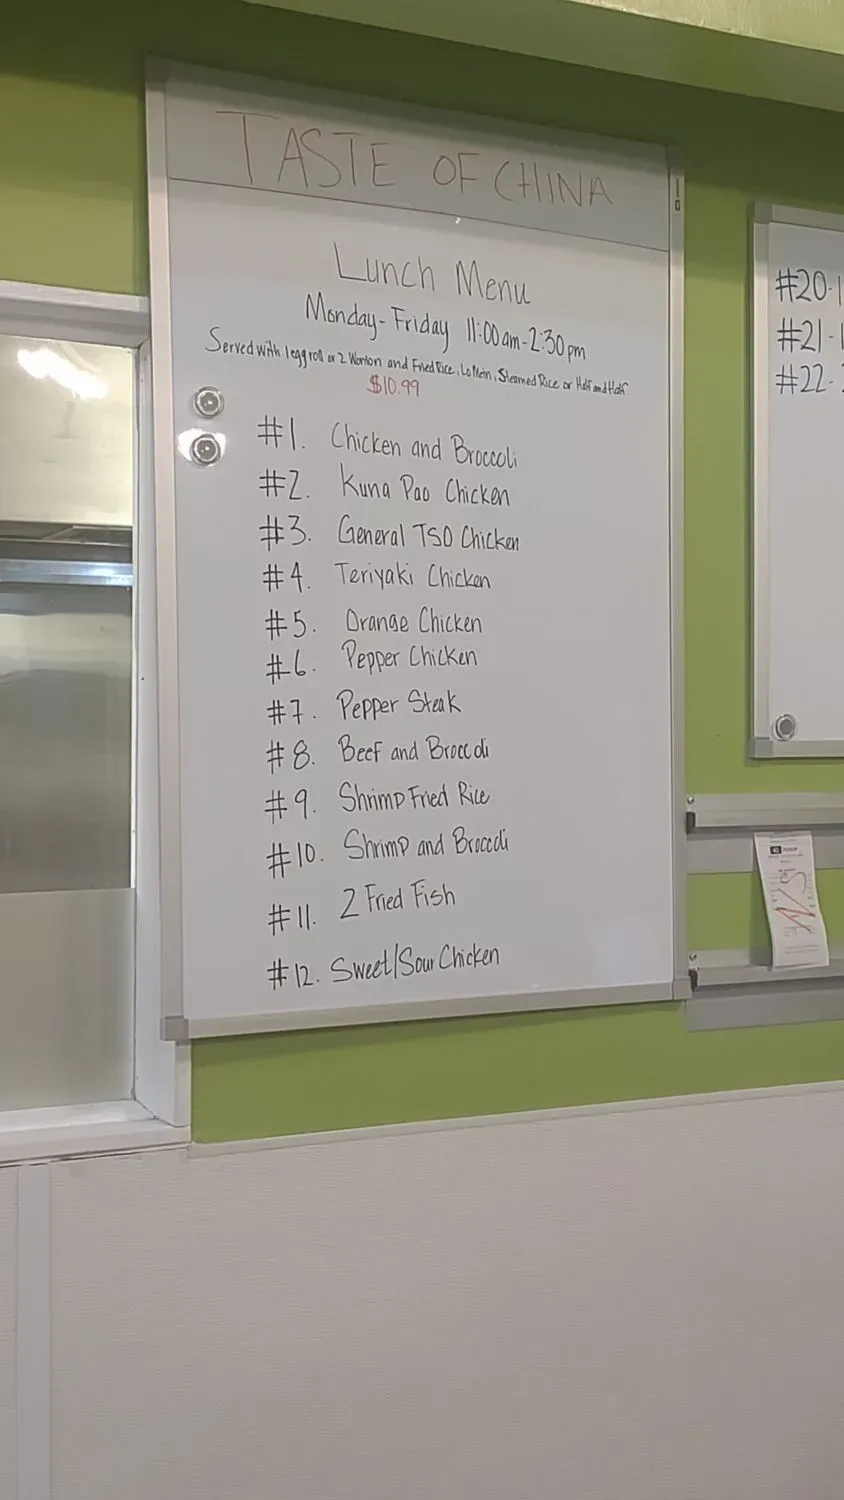 TASTE OF CHINA
Lunch Menu
Monday-Friday 11:00am-2:30pm
Served with 1 eggroll or 2 Wonton and Fried Rice, Lo Mein, Steamed Rice or Half and Half
$10.99
#1. Chicken and Broccoli
#2. Kuna Pao Chicken
#3. General TSO Chicken
#4. Teriyaki Chicken
#5. Orange Chicken
#6. Pepper Chicken
#7. Pepper Steak
#8. Beef and Broccoli
#9. Shrimp Fried Rice
#10. Shrimp and Broccoli
#11. 2 Fried Fish
#12. Sweet/Sour Chicken
#20-1
#21-
#22-